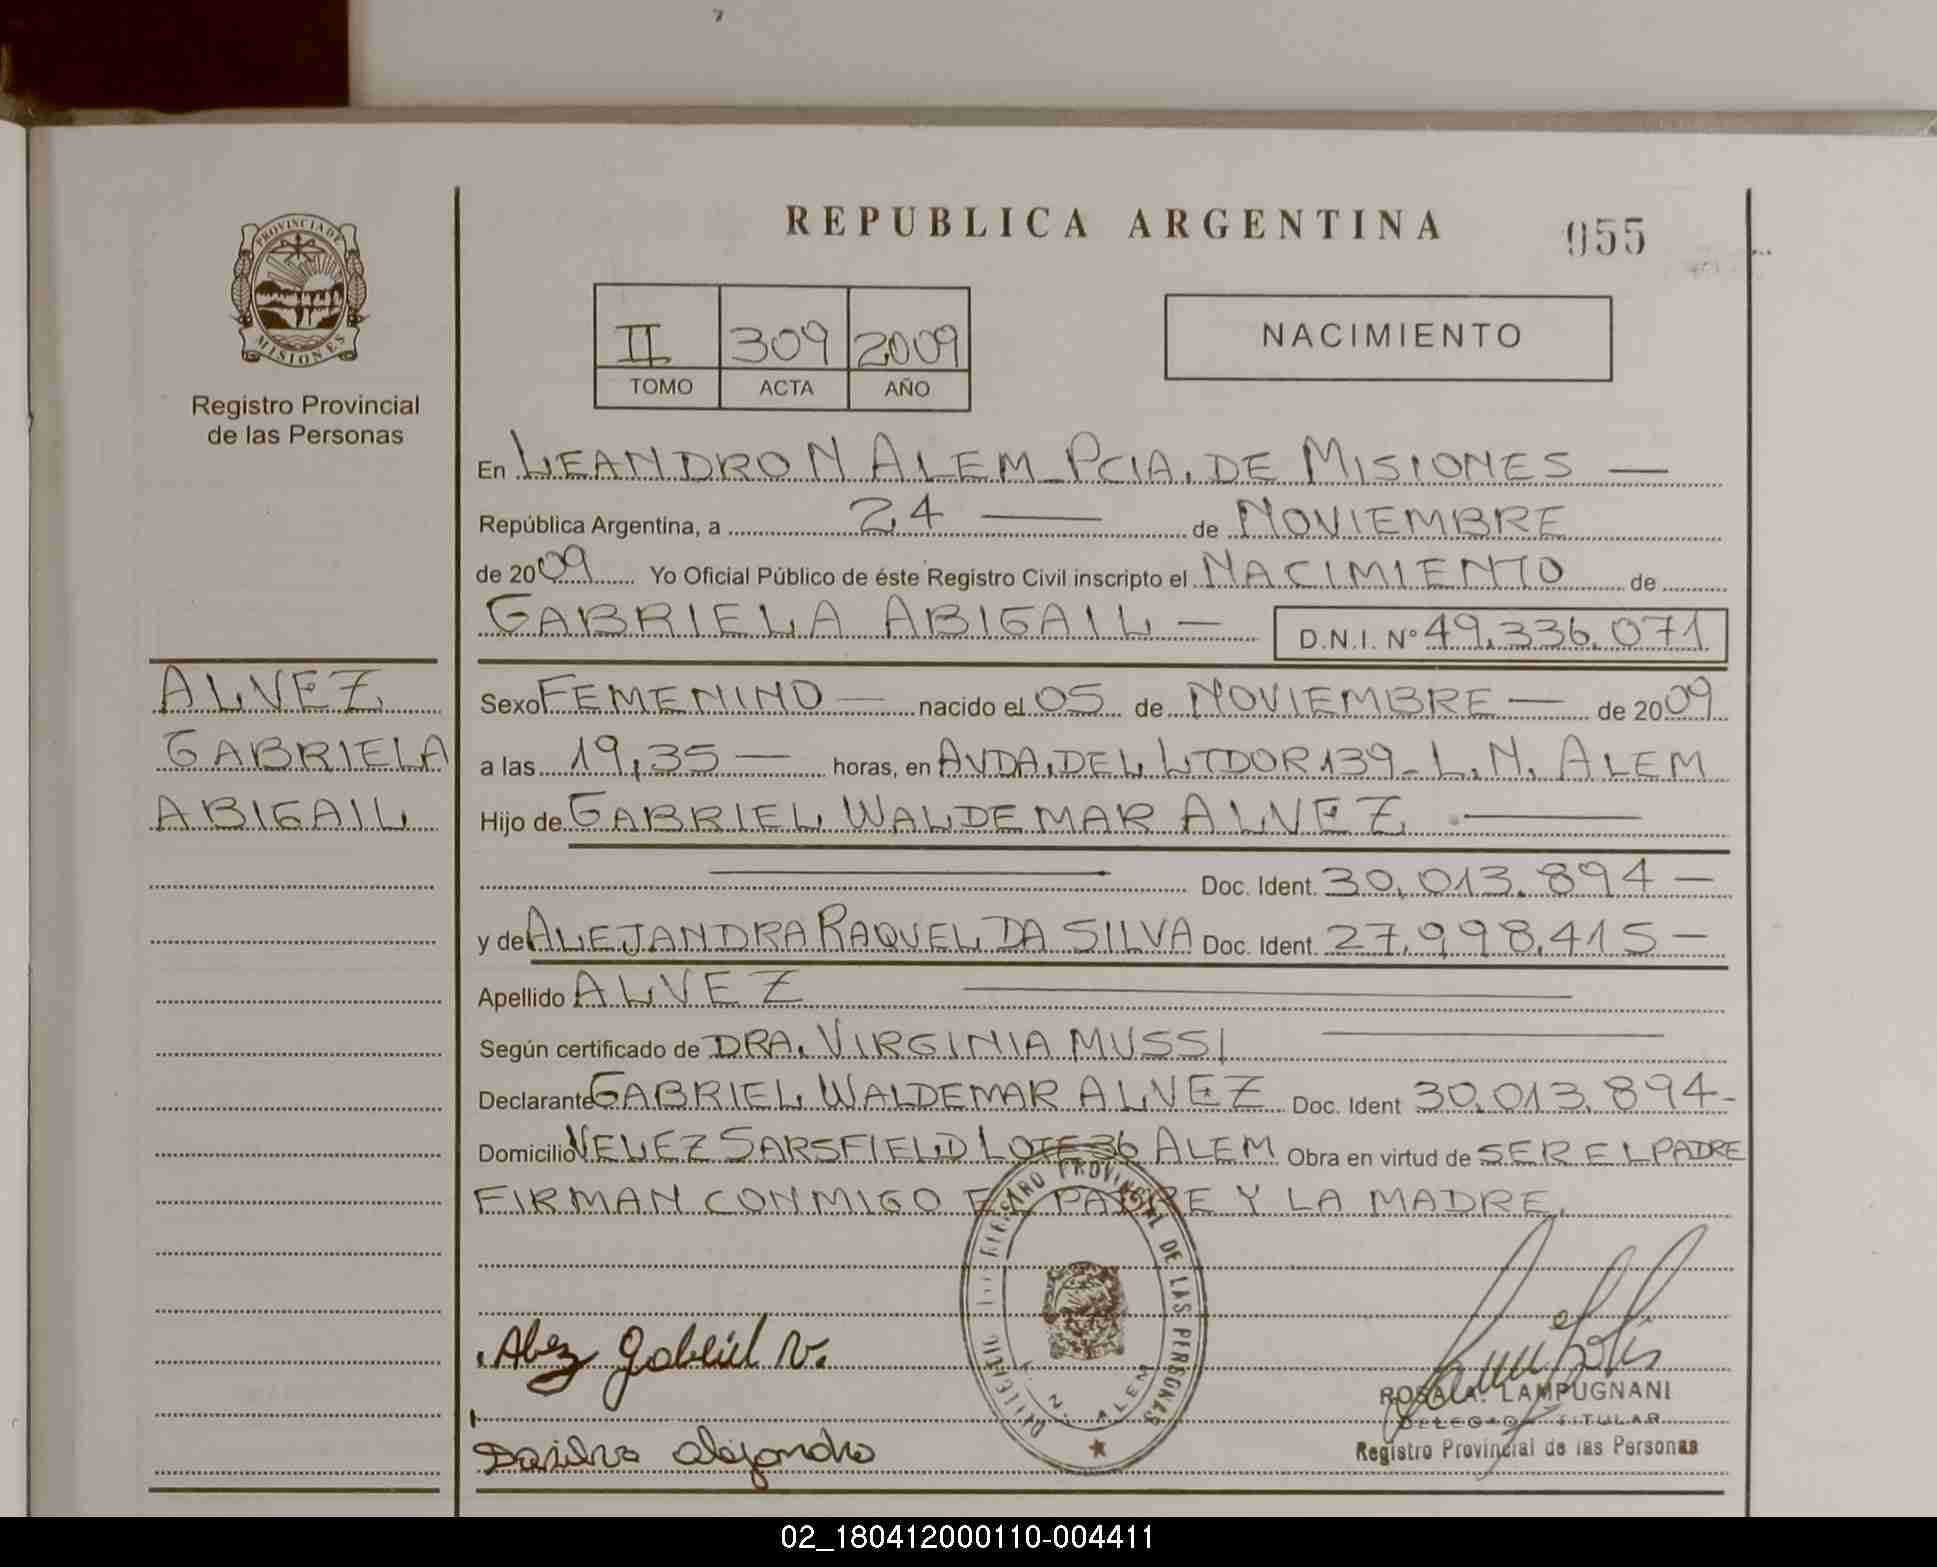 REPUBLICA ARGENTINA
055
PROVINCIA DE
MISIONES
Registro Provincial
de las Personas
II 309 2009
TOMO ACTA AÑO
NACIMIENTO
En LEANDRO N ALEM - PCIA. DE MISIONES —
República Argentina, a 24 — de NOVIEMBRE
de 2009 Yo Oficial Público de éste Registro Civil inscripto el NACIMIENTO de
GABRIELA ABIGAIL — D.N.I. N° 49.336.071
ALVEZ
GABRIELA
ABIGAIL
Sexo FEMENINO — nacido el 05 de NOVIEMBRE — de 2009
a las 19,35 — horas, en AVDA. DEL LTDOR 139 - L. N. ALEM
Hijo de GABRIEL WALDEMAR ALVEZ —
— Doc. Ident. 30.013.894 —
y de ALEJANDRA RAQUEL DA SILVA Doc. Ident. 27.998.415 —
Apellido ALVEZ —
Según certificado de DRA. VIRGINIA MUSSI —
Declarante GABRIEL WALDEMAR ALVEZ Doc. Ident 30.013.894 -
Domicilio VELEZ SARSFIELD LOTE 36 ALEM Obra en virtud de SER EL PADRE
FIRMAN CONMIGO EL PADRE Y LA MADRE.
REGISTRO PROVINCIAL DE LAS PERSONAS
L. N. ALEM
Alvez Gabriel W.
Dasilva Alejandra
ROSA A. LAMPUGNANI
DELEGADA TITULAR
Registro Provincial de las Personas
02_180412000110-004411